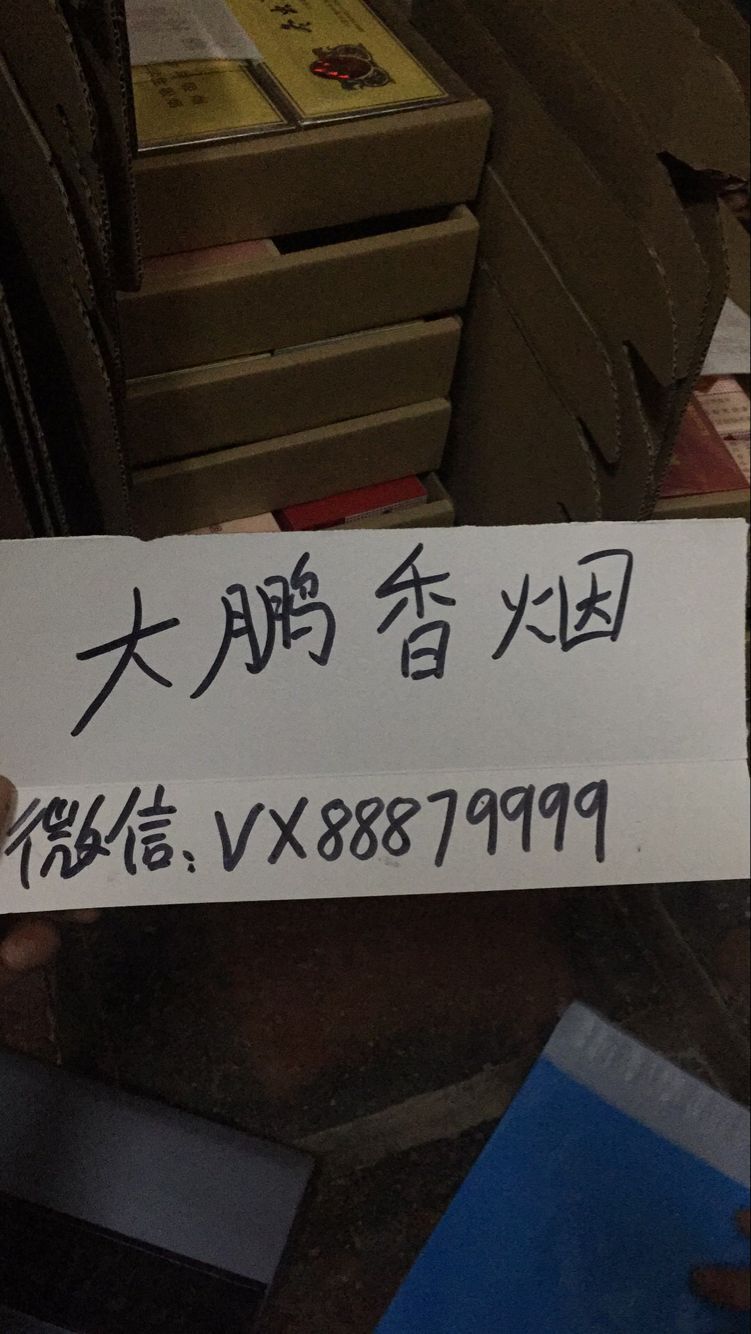 大鹏香烟
微信:VX88879999